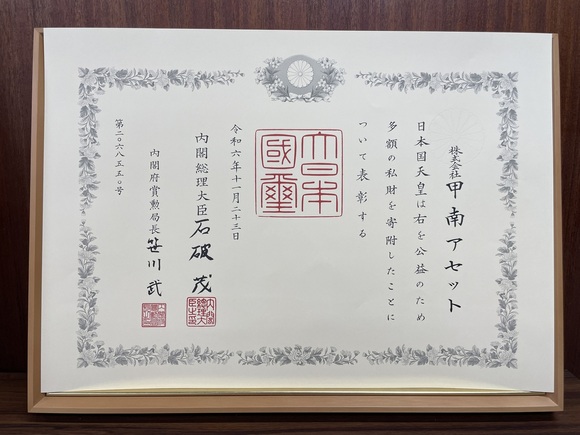 株式会社 甲南アセット
日本国天皇は右を公益のため
多額の私財を寄附したことに
ついて表彰する
大日本國璽
令和六年十一月二十三日
内閣総理大臣 石破 茂
内閣総理大臣之印
内閣府賞勲局長 笹川 武
第二〇六八五五〇号